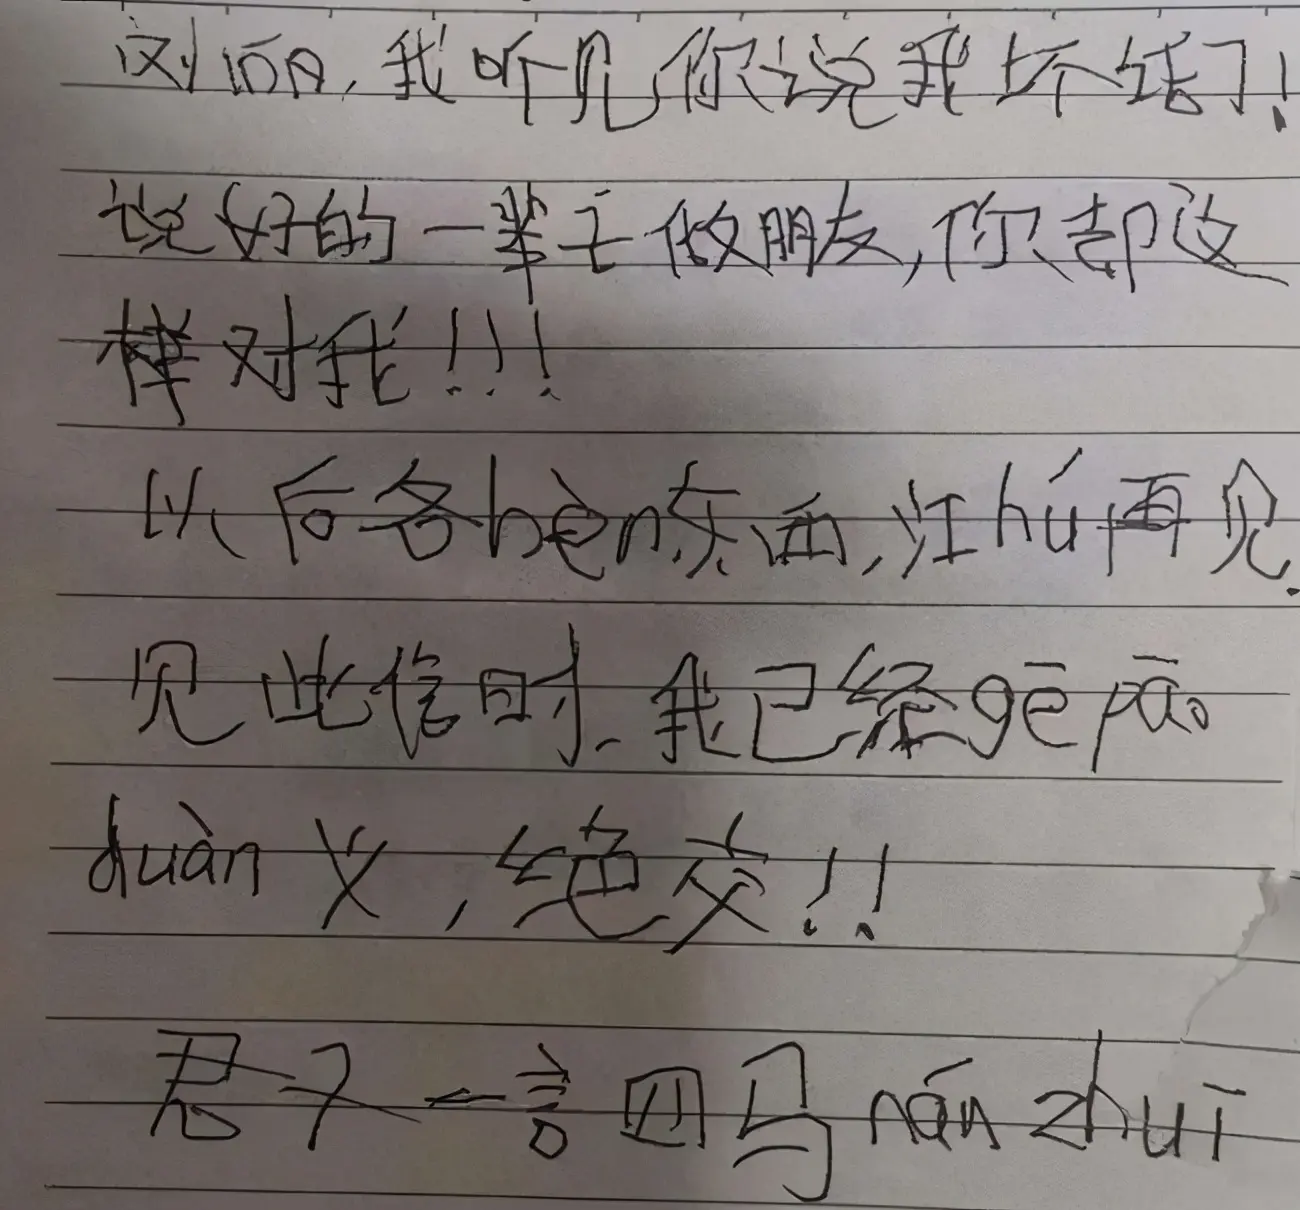 刘 ，我听见你说我坏话了！
说好的一辈子做朋友，你却这
样对我！！！
以后各bèn东西，江hú再见.
见此信时、我已经gē pāo
duàn义，绝交！！
君子一言四马nán zhuī